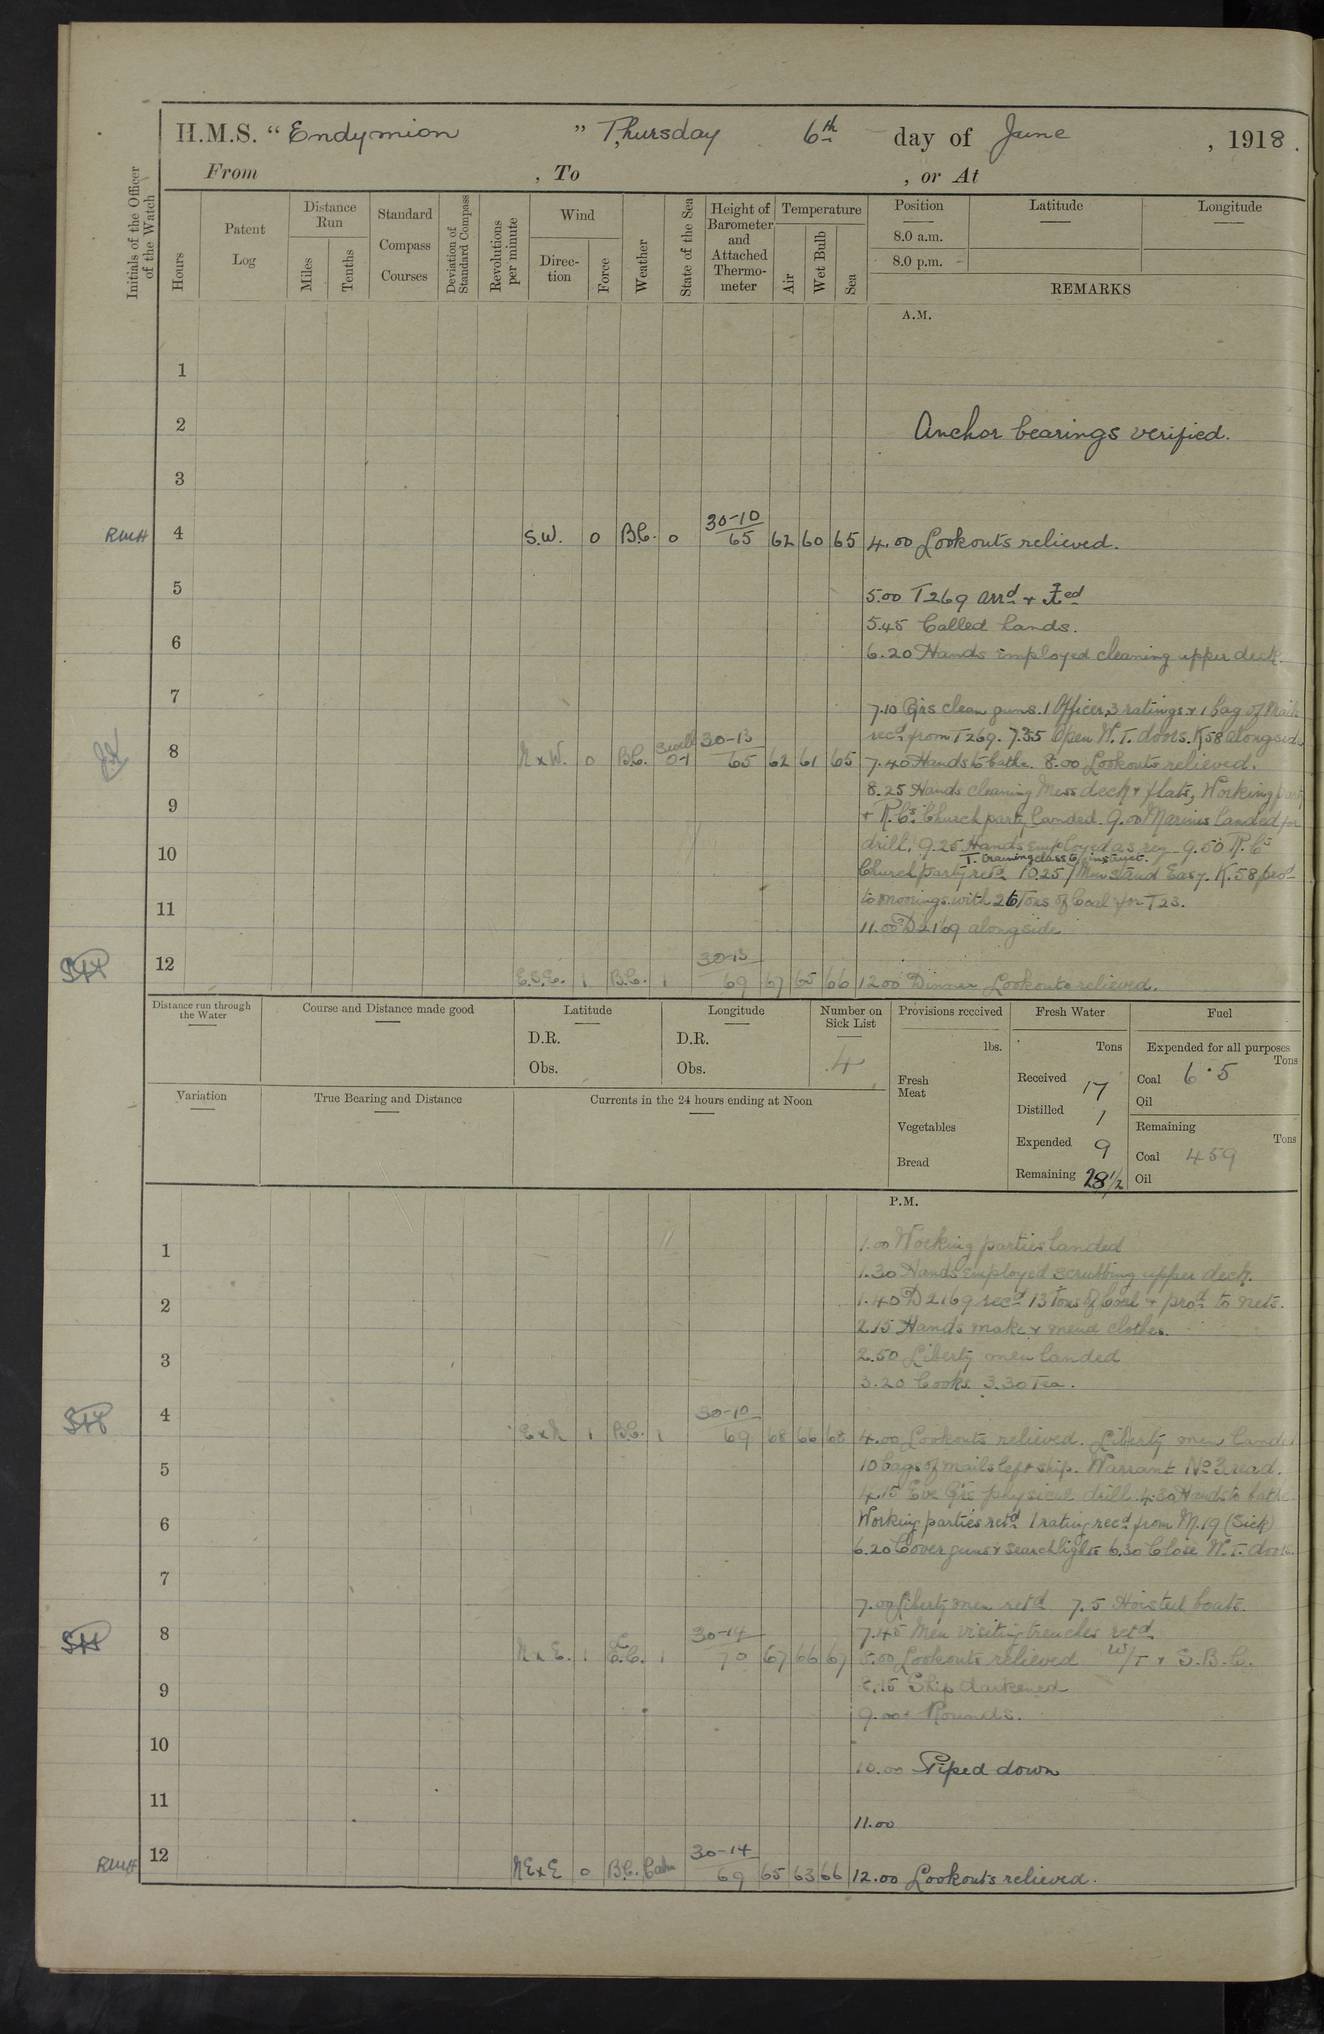 H.M.S. “ Endymion ” Thursday 6th day of June , 1918.
From , To , or At
Initials of the Officer of the Watch
Hours
Patent Log
Distance Run
Miles
Tenths
Standard Compass Courses
Deviation of Standard Compass
Revolutions per minute
Wind
Direction
Force
Weather
State of the Sea
Height of Barometer and Attached Thermometer
Temperature
Air
Wet Bulb
Sea
Position
8.0 a.m.
8.0 p.m.
Latitude
Longitude
REMARKS
A.M.
1
2 Anchor bearings verified.
3
30-10
RWH 4 S.W. 0 B.C. 0 65 62 60 65 4.00 Lookouts relieved.
5 5.00 T269 arrd &
5.45 Called hands.
6 6.20 Hands employed cleaning upper deck.
7 7.10 Qrs clean guns. 1 Officer, 3 ratings & 1 bag of Mail
recd from T269. 7.35 Open W.T. doors. K58 alongside
30-13
8 N x W. 0 B.C. Swell 01 65 62 61 65 7.40 Hands to bathe. 8.00 Lookouts relieved.
8.25 Hands cleaning Mess deck & flats, Working party
9 & R.Cs. Church party landed. 9.00 Marines landed for
drill. 9.25 Hands employed as req. 9.50 R.Cs
10 T. Training class to instruct.
Church party retd 10.25 Men stand Easy. K.58 procd
11 to moorings with 26 Tons of Coal for T23.
11.00 D2169 alongside
30-13
12 E.S.E. 1 B.C. 1 69 67 65 66 12.00 Dinner Lookouts relieved.
Distance run through the Water
Course and Distance made good
Latitude
D.R.
Obs.
Longitude
D.R.
Obs.
Number on Sick List
4
Provisions received
lbs.
Fresh Meat
Vegetables
Bread
Fresh Water
Tons
Received 17
Distilled 1
Expended 9
Remaining 28 1/2
Fuel
Expended for all purposes
Tons
Coal 6.5
Oil
Remaining
Tons
Coal 459
Oil
Variation
True Bearing and Distance
Currents in the 24 hours ending at Noon
P.M.
1 1.00 Working parties landed
1.30 Hands employed scrubbing upper deck.
2 1.40 D2169 recd 13 Tons of Coal & procd to nets.
2.15 Hands make & mend clothes.
3 2.50 Liberty men landed
3.20 Cooks 3.30 Tea.
30-10
4 E x N 1 B.C. 1 69 68 66 68 4.00 Lookouts relieved. Liberty men landed
5 10 bags of mails left ship. Warrant No 3 read.
4.15 Eve Qrs physical drill. 4.30 Hands to bathe
6 Working parties retd 1 rating recd from M.19 (Sick)
6.20 Cover guns & searchlights 6.30 Close W.T. doors.
7 7.00 Liberty men retd 7.5 Hoisted boats.
7.45 Men visiting trenches retd
30-14
8 N x E. 1 C. 1 70 67 66 67 8.00 Lookouts relieved W/T & S.B.C.
8.15 Ship darkened
9 9.00 Rounds.
10 10.00 Piped down
11 11.00
30-14
RWH 12 NE x E 0 B.C. Calm 69 65 63 66 12.00 Lookouts relieved.